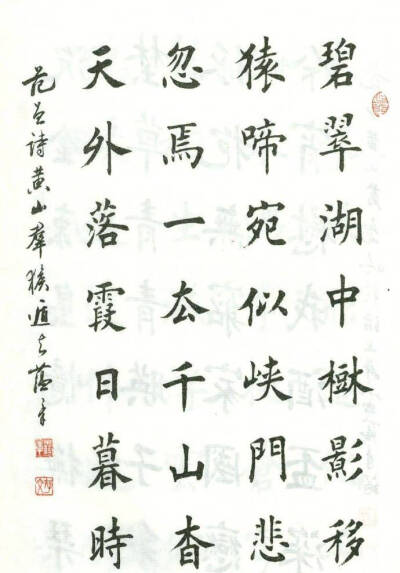 碧翠湖中樹影移
猿啼宛似峽門悲
忽焉一去千山杳
天外落霞日暮時
范曾詩黄山羣